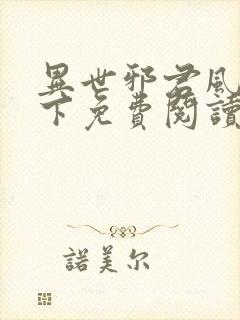 異世邪君風
下免費閱讀
諾美尔